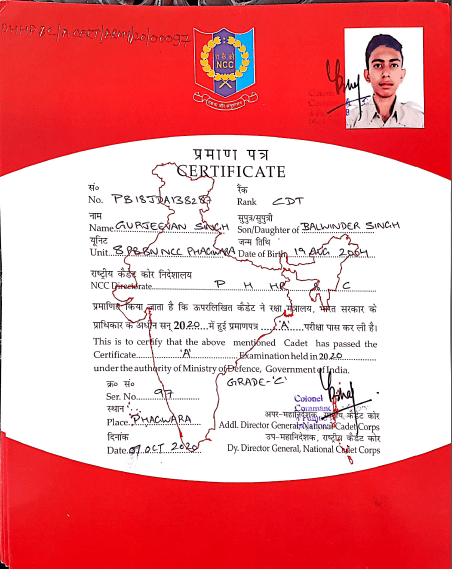 NCC
प्रमाण पत्र
CERTIFICATE
सं० रैंक
No. PB18JDA138287 Rank CDT
नाम सुपुत्र/सुपुत्री
Name GURJEEVAN SINGH Son/Daughter of BALWINDER SINGH
यूनिट जन्म तिथि
Unit 8 PB BN NCC PHAGWARA Date of Birth 19 AUG 2004
राष्ट्रीय कैडेट कोर निदेशालय
NCC Directorate P H HP & C
प्रमाणित किया जाता है कि ऊपरलिखित कैडेट ने रक्षा मंत्रालय, भारत सरकार के
प्राधिकार के अधीन सन् 2020 में हुई प्रमाणपत्र 'A' परीक्षा पास कर ली है।
This is to certify that the above mentioned Cadet has passed the
Certificate 'A' Examination held in 2020
under the authority of Ministry of Defence, Government of India.
क्र० सं० GRADE-'C'
Ser. No. 97
Colonel
स्थान
अपर-महानिदेशक, राष्ट्रीय कैडेट कोर
Place PHAGWARA Addl. Director General, National Cadet Corps
दिनांक उप-महानिदेशक, राष्ट्रीय कैडेट कोर
Date 07 OCT 2020 Dy. Director General, National Cadet Corps